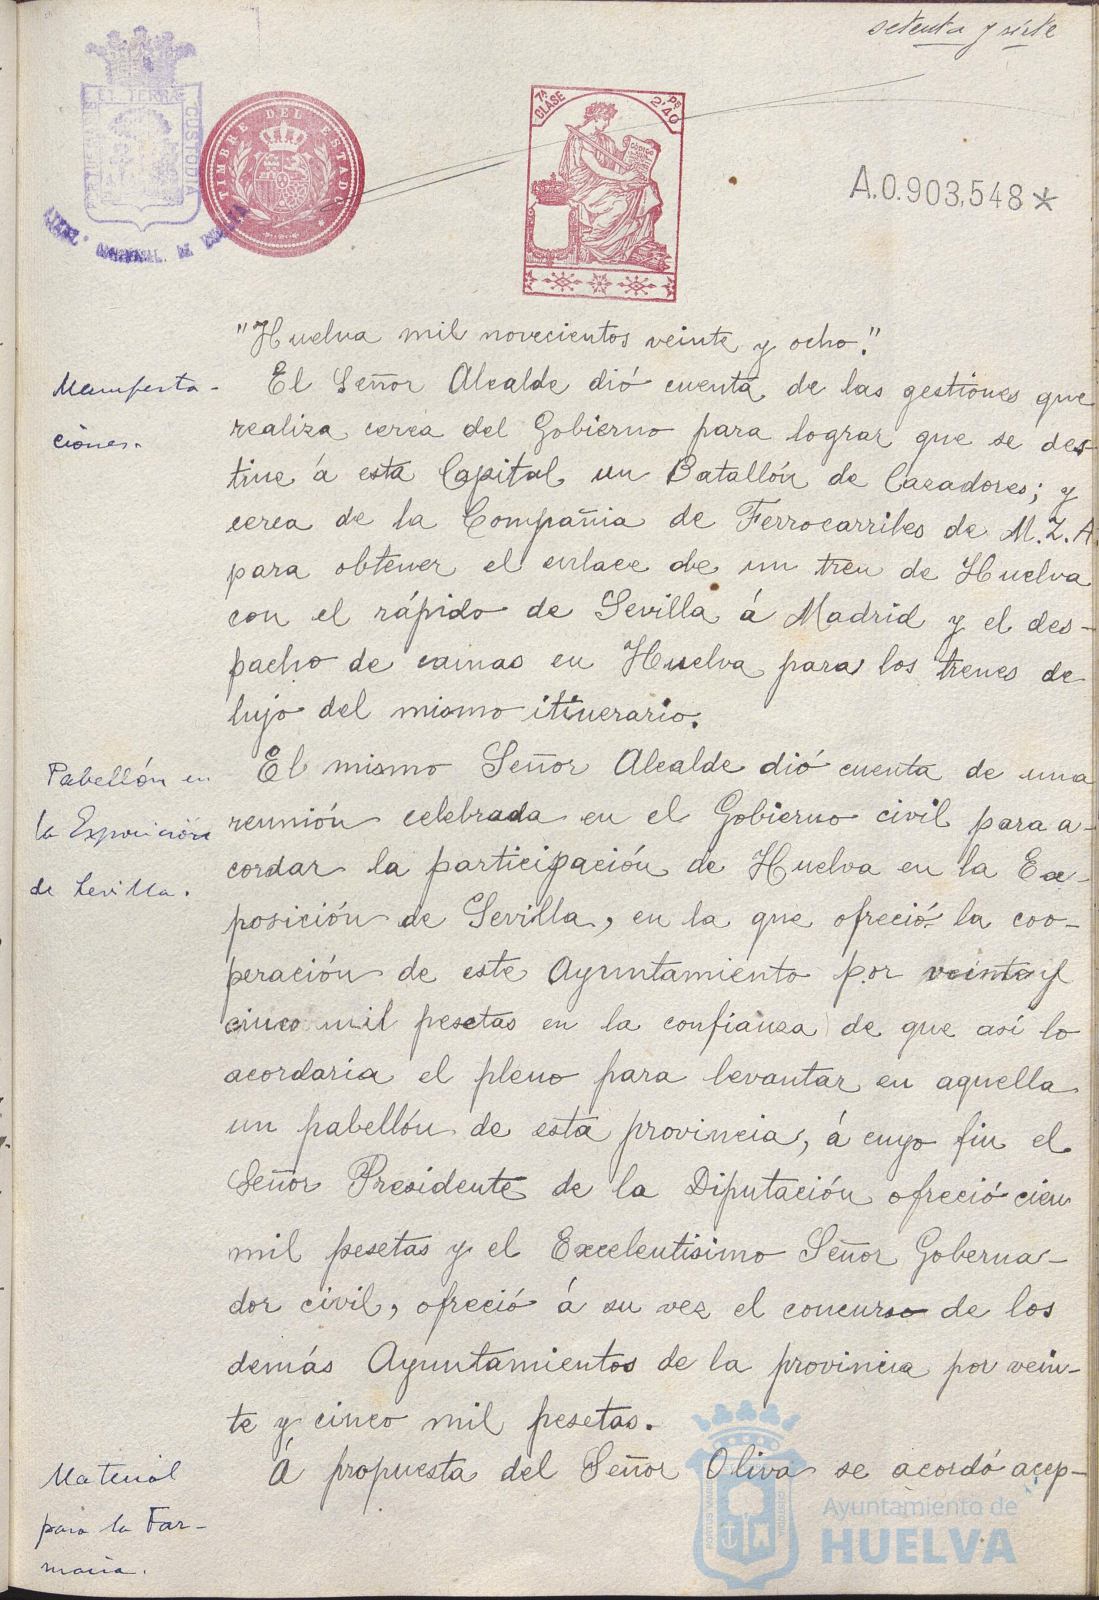 setenta y siete
TIMBRE DEL ESTADO
7ª CLASE
Ps 2'40
CÓDIGO
CUSTODIA
A.0.903,548*
"Huelva mil novecientos veinte y ocho."
Manifesta-
ciones.
El Señor Alcalde dió cuenta de las gestiones que
realiza cerca del Gobierno para lograr que se des-
tine á esta Capital un Batallón de Cazadores; y
cerca de la Compañia de Ferrocarriles de M.Z.A
para obtener el enlace de un tren de Huelva
con el rápido de Sevilla á Madrid y el des-
pacho de camas en Huelva para los trenes de
lujo del mismo itinerario.
Pabellón en
la Exposición
de Sevilla.
El mismo Señor Alcalde dió cuenta de una
reunión celebrada en el Gobierno civil para a-
cordar la participación de Huelva en la Ex-
posición de Sevilla, en la que ofreció la coo-
peración de este Ayuntamiento por veinte y
cinco mil pesetas en la confianza de que así lo
acordaria el pleno para levantar en aquella
un pabellón de esta provincia, á cuyo fin el
Señor Presidente de la Diputación ofreció cien
mil pesetas y el Excelentisimo Señor Goberna-
dor civil, ofreció á su vez el concurso de los
demás Ayuntamientos de la provincia por vein-
te y cinco mil pesetas.
Material
para la Far-
macia.
Á propuesta del Señor Oliva se acordó acep-
Ayuntamiento de
HUELVA